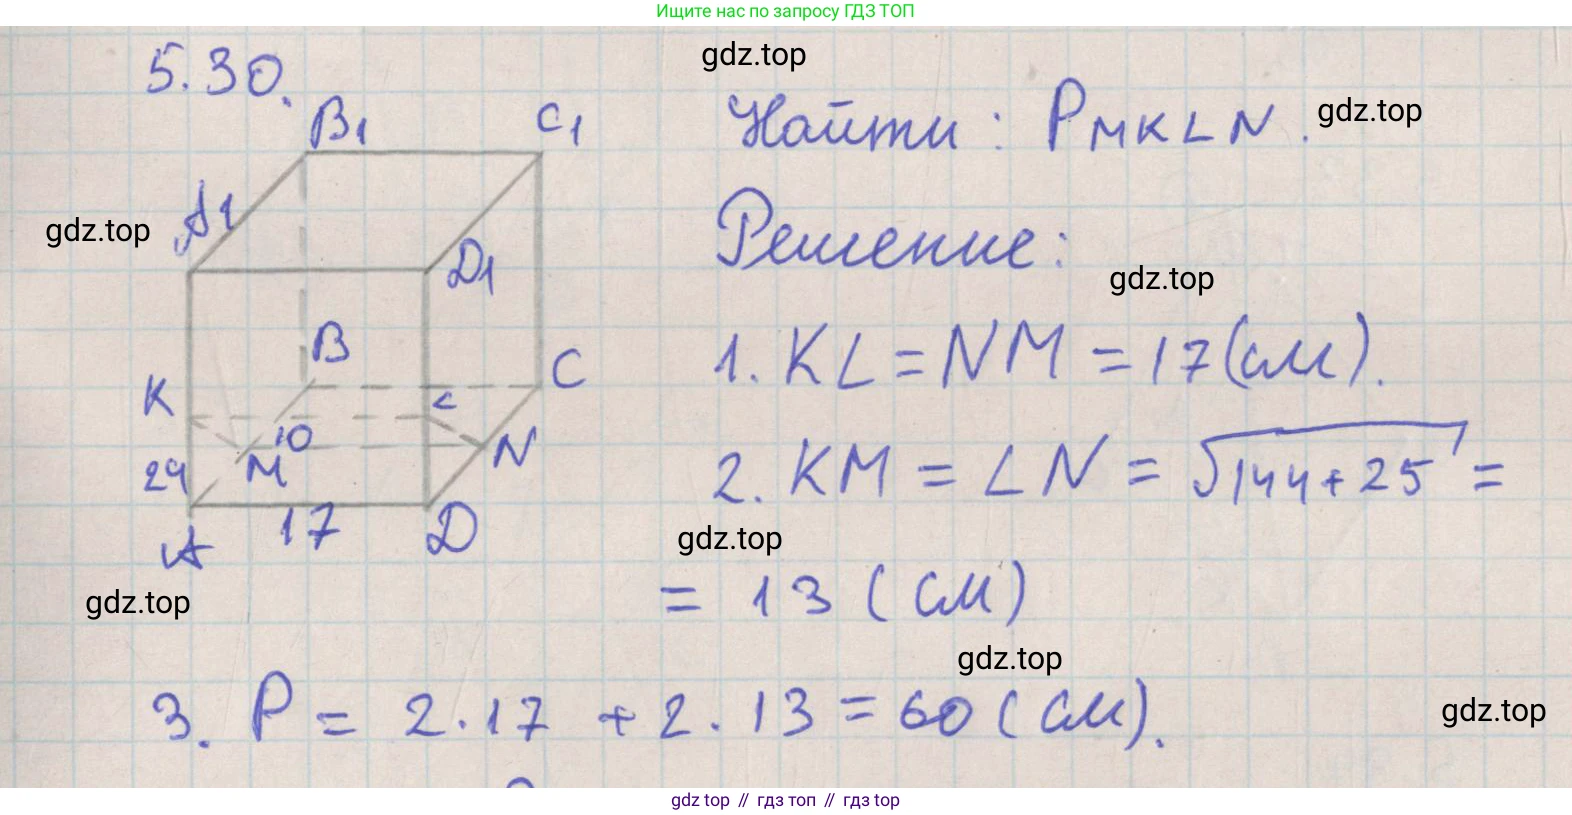 Ищите нас по запросу ГДЗ ТОП
gdz.top
5.30.
B1
C1
Найти: P MKLN.
gdz.top
A1
gdz.top
Решение:
D1
gdz.top
B
1. KL = NM = 17 (см).
C
K
L
10
N
24
M
2. KM = LN = √144+25 =
17
A
D
gdz.top
= 13 (см)
gdz.top
gdz.top
3. P = 2·17 + 2·13 = 60 (см).
gdz.top
gdz top // гдз топ // гдз top